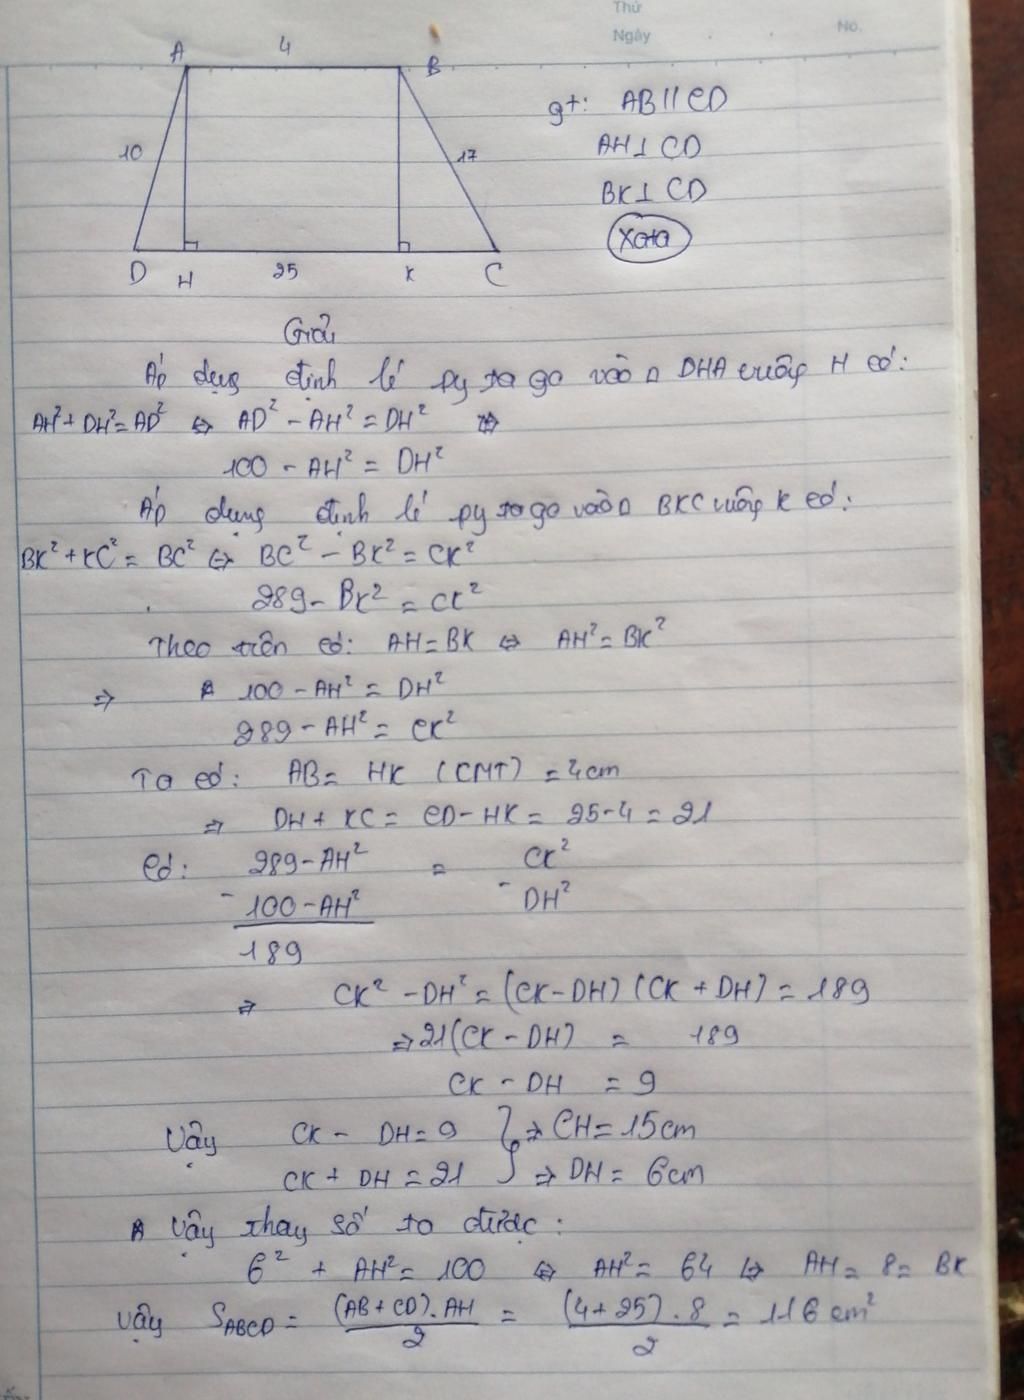 Thứ
Ngày
No.
A 4 B
gt: AB // CD
AH ⊥ CD
10 17
BK ⊥ CD
D H 25 K C
Giải
Áp dụng định lí pytago vào △ DHA vuông H có:
AH² + DH² = AD² ⇔ AD² - AH² = DH²
100 - AH² = DH²
Áp dụng định lí pytago vào △ BKC vuông K có:
BK² + KC² = BC² ⇔ BC² - BK² = CK²
289 - BK² = CK²
Theo trên có: AH = BK ⇔ AH² = BK²
⇒ 100 - AH² = DH²
289 - AH² = CK²
Ta có: AB = HK (CMT) = 4cm
⇒ DH + KC = CD - HK = 25 - 4 = 21
Có: 289 - AH² = CK²
- 100 - AH² - DH²
189
⇒ CK² - DH² = (CK - DH) (CK + DH) = 189
⇒ 21(CK - DH) = 189
CK - DH = 9
Vậy CK - DH = 9 } ⇒ CH = 15cm
CK + DH = 21 ⇒ DH = 6cm
Vậy thay số ta được:
6² + AH² = 100 ⇔ AH² = 64 ⇔ AH = 8 = BK
Vậy S_ABCD = (AB + CD).AH / 2 = (4 + 25).8 / 2 = 116 cm²